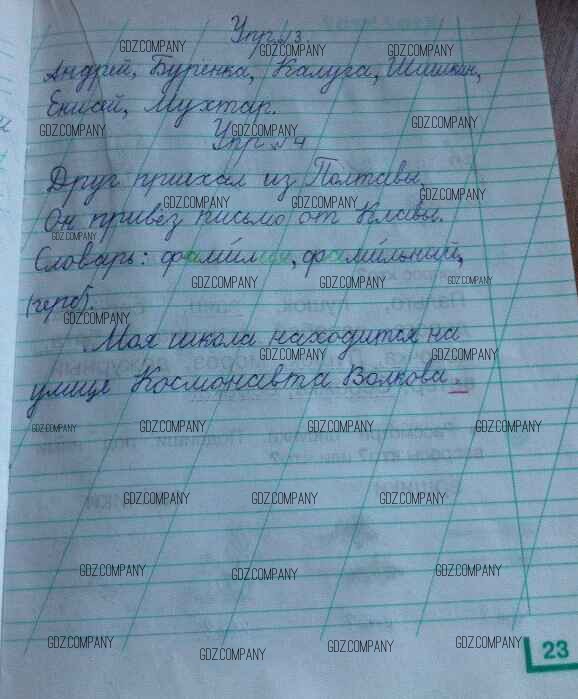 Упр. 3.
Андрей, Буренка, Калуга, Шишкин,
Енисей, Мухтар.
Упр. 4
Друг приехал из Полтавы.
Он привёз письмо от Клавы.
Словарь: фамилия, фамильный,
(герб).
Моя школа находится на
улице Космонавта Волкова.
23
GDZ.COMPANY